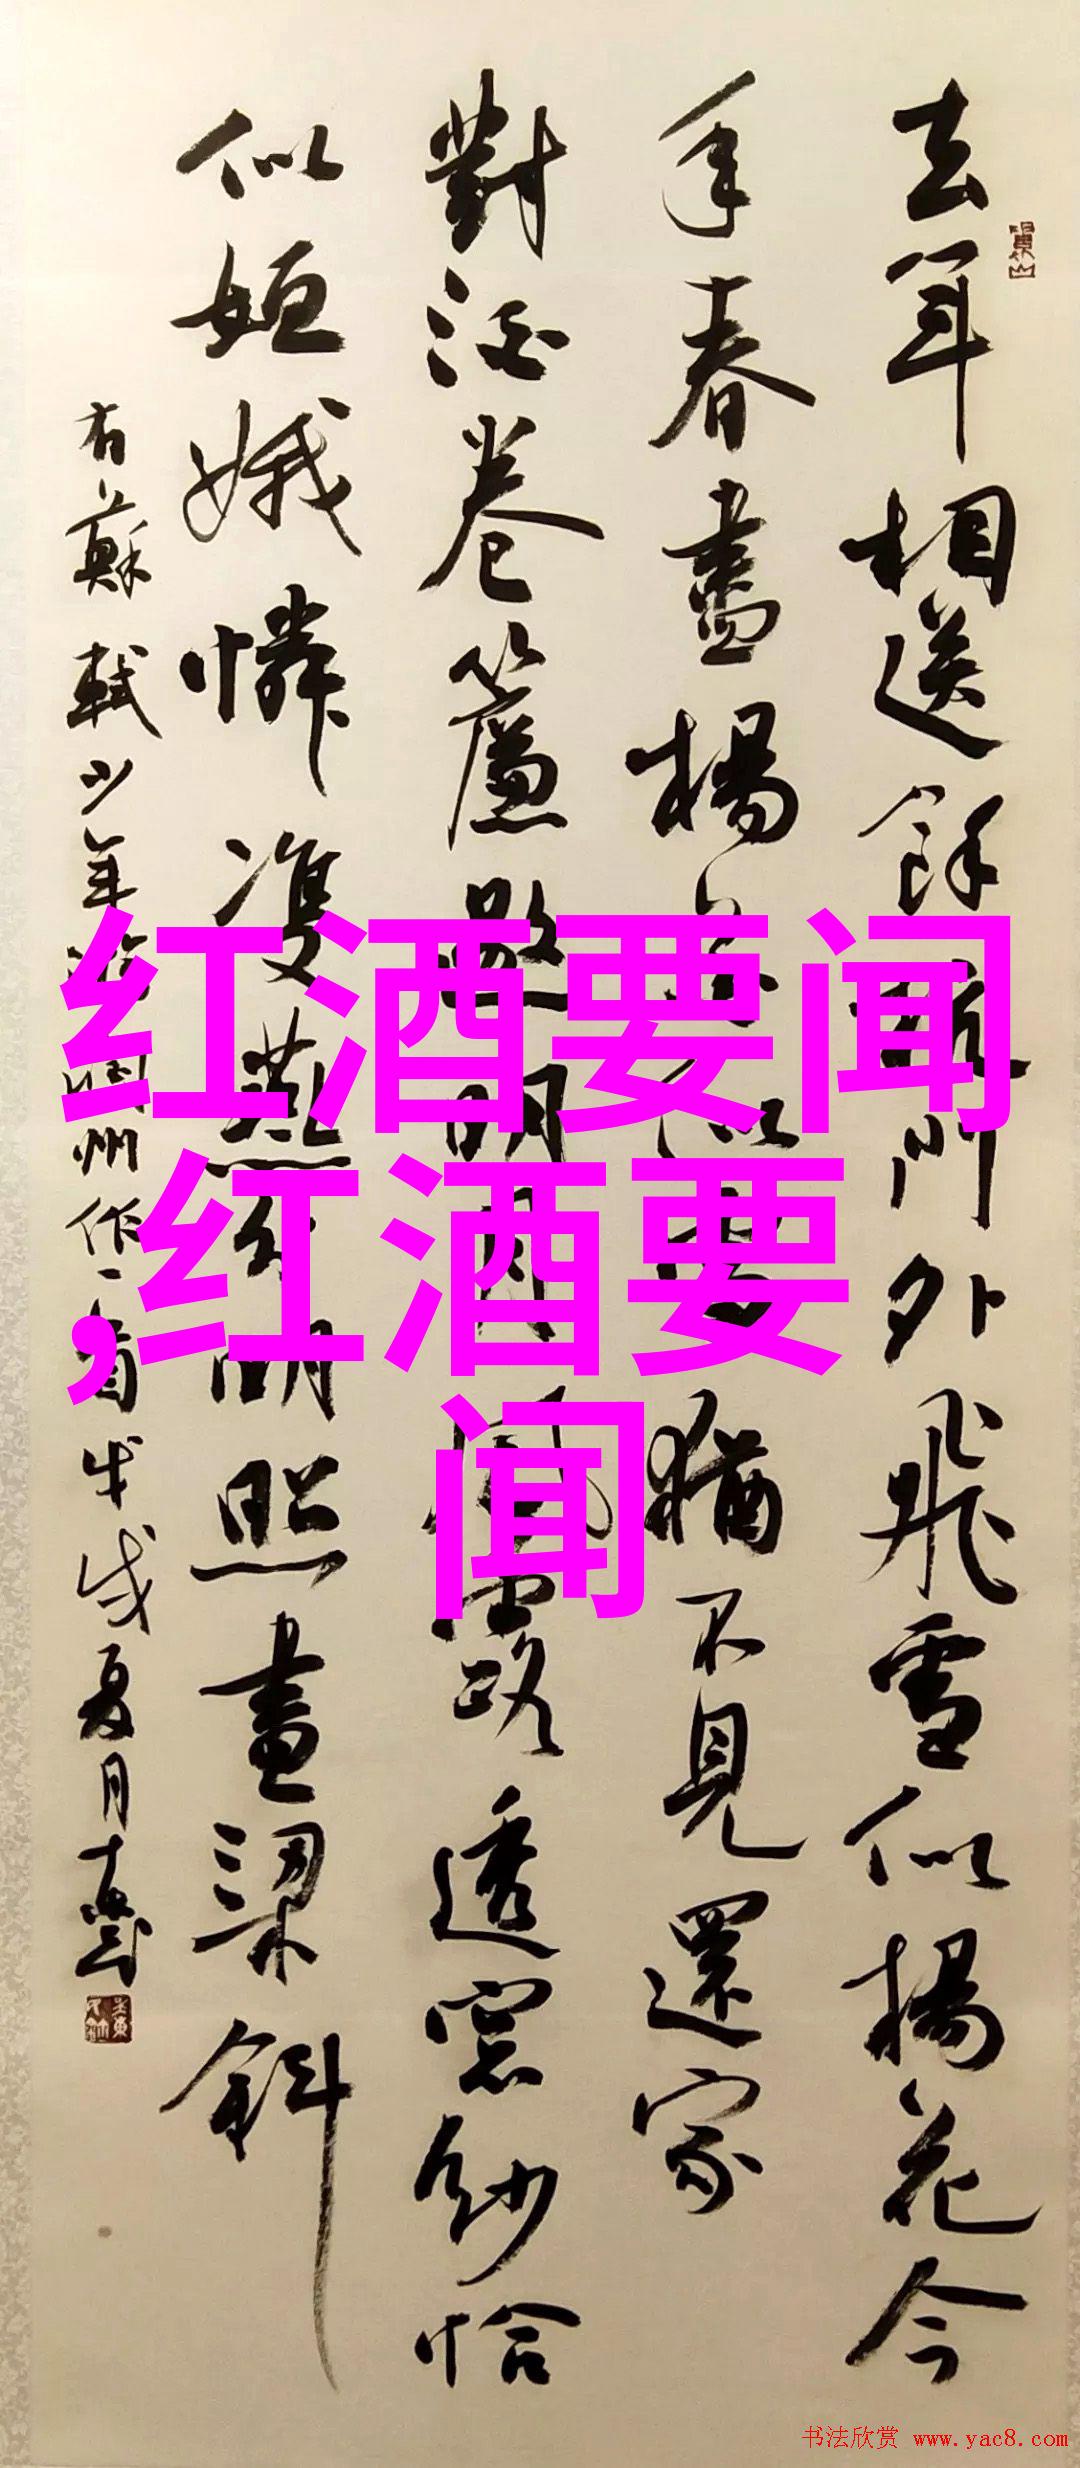 去年相送餘杭門外飛雪似楊花今
年春盡楊花似雪猶不見還家
對酒卷簾邀明月風露透窓紗恰
似姮娥憐雙燕分明照畫梁斜
右蘇軾少年游潤州作一首戊戌夏月
红酒要闻
,红酒要
闻
书法欣赏 www.yac8.com